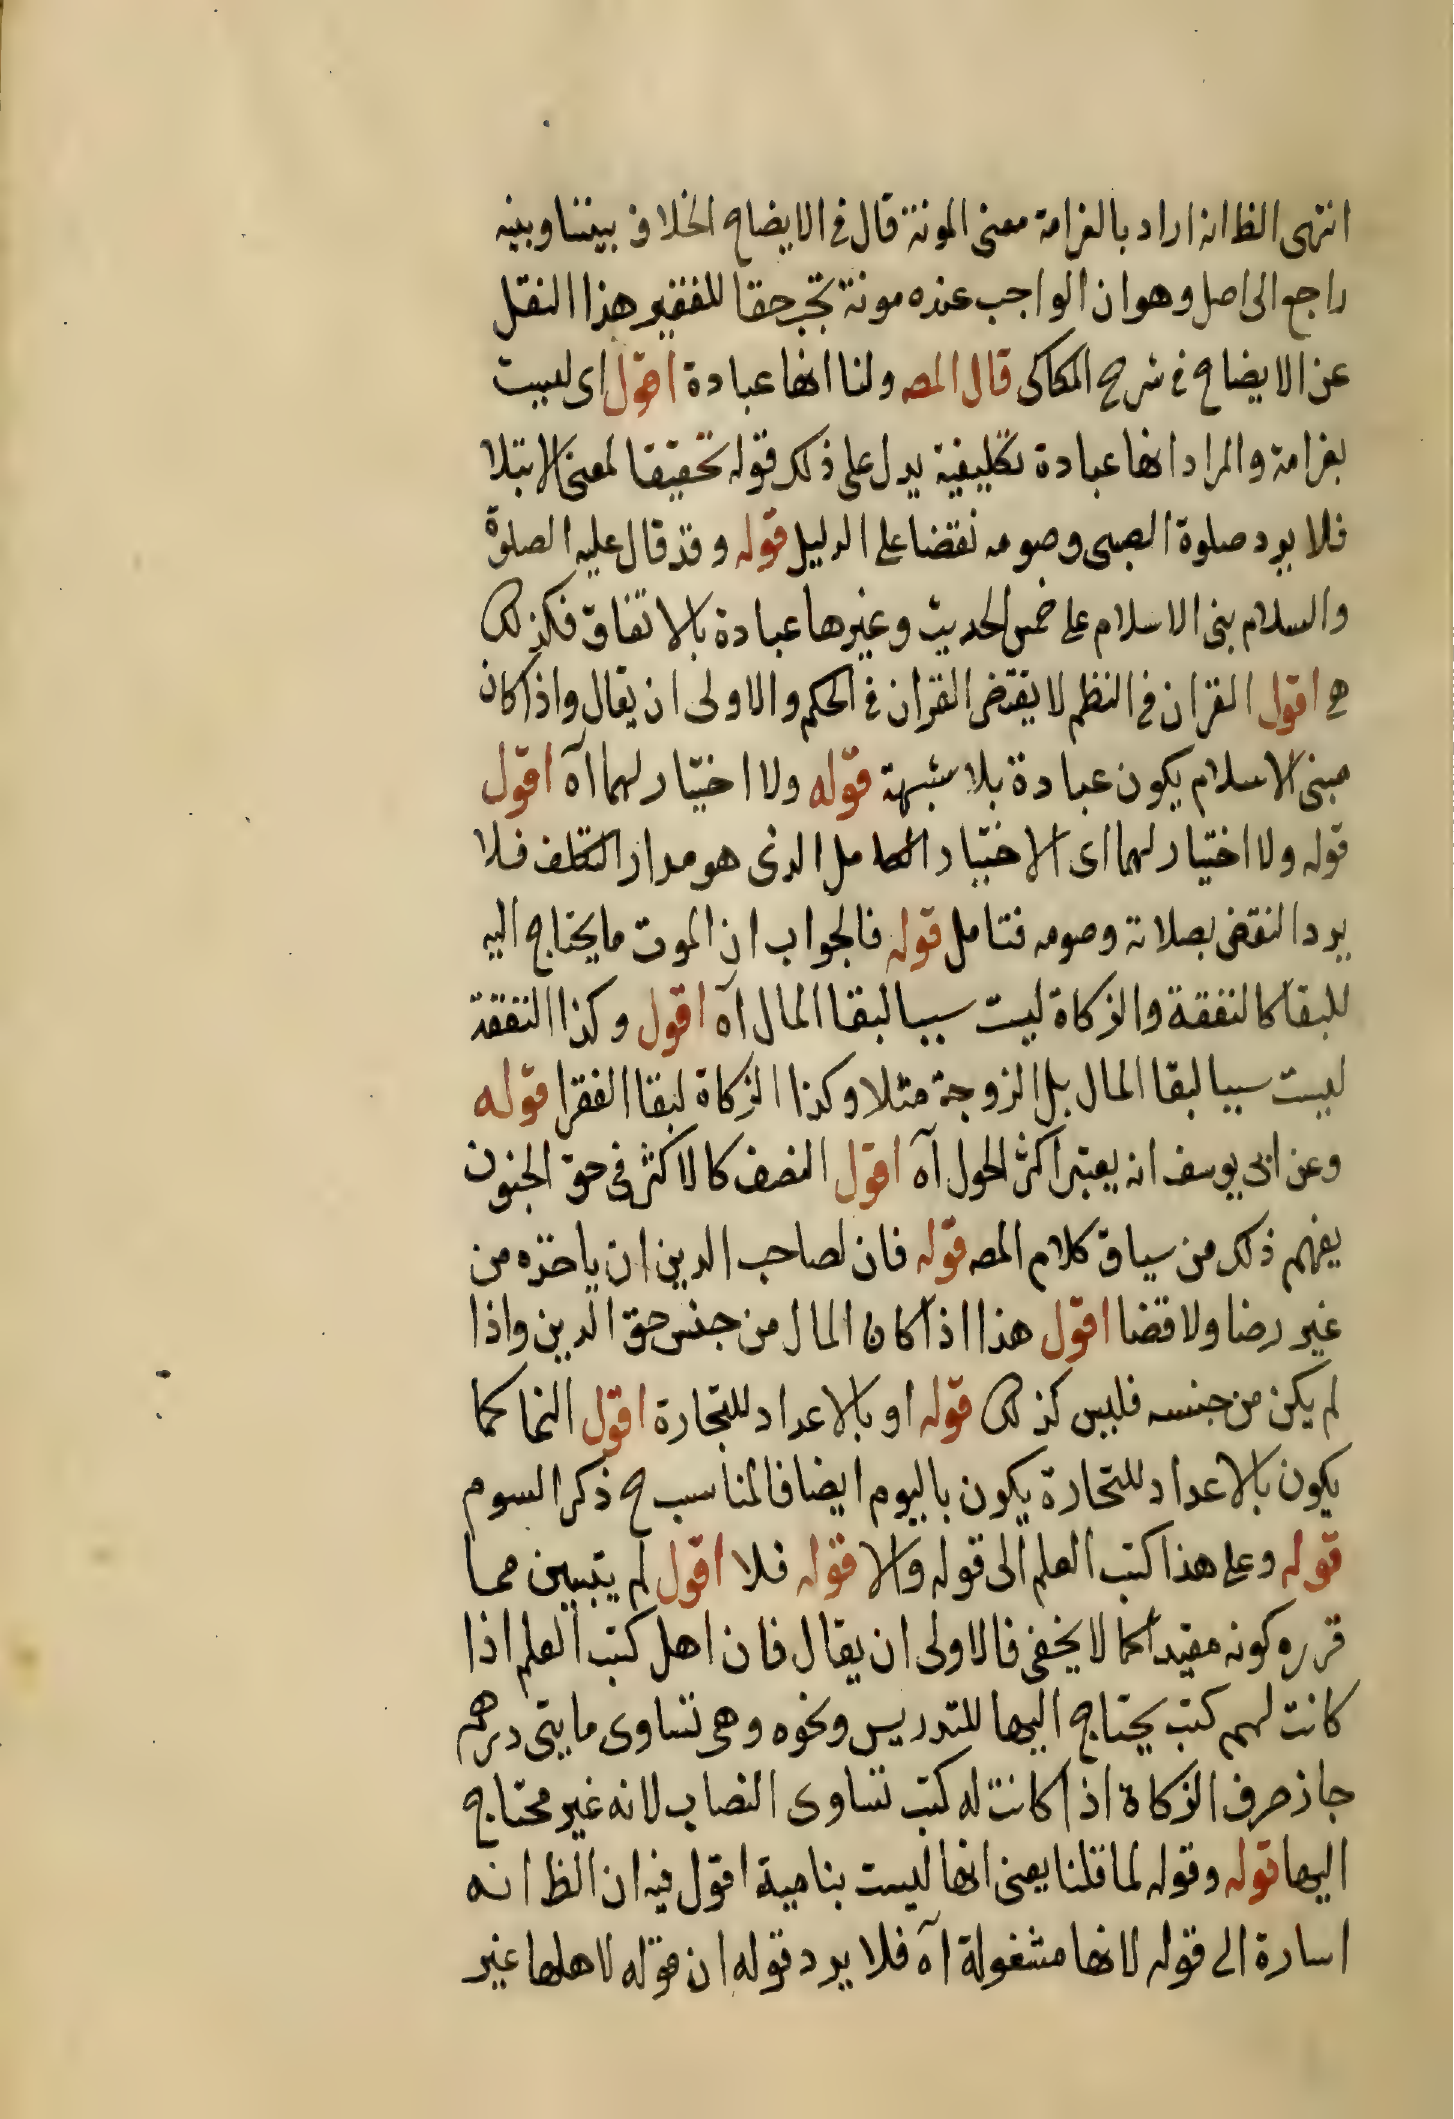 انتهى الظ انه اراد بالغرامة معنى المونة قال في الايضاح الخلاف بيننا وبينه
راجع الى اصل وهو ان الواجب عنده مونة تجب حقا للفقير هذا النقل
عن الايضاح في شرح الكاكى قال المصـ ولنا انها عبادة اقول اى ليست
بغرامة والمراد انها عبادة تكليفية يدل على ذلك قوله تحقيقا لمعنى الابتلا
فلا يرد صلوة الصبى وصومه نقضا على الدليل قوله وقد قال عليه الصلوة
والسلام بنى الاسلام على خمس الحديث وغيرها عبادة بالاتفاق فكذلك
هى اقول القران في النظم لا يقتض القران في الحكم والاولى ان يقال واذا كان
مبنى الاسلام يكون عبادة بلا شبهة قوله ولا اختيار لهما آه اقول
قوله ولا اختيار لهما اى الاختيار الكامل الذى هو مدار التكلف فلا
يرد النقض بصلاته وصومه فتامل قوله فالجواب ان الموت ما يحتاج اليه
للبقا كالنفقة والزكاة ليست سببا لبقا المال آه اقول وكذا النفقة
ليست سببا لبقا المال بل الزوجة مثلا وكذا الزكاة لبقا الفقرا قوله
وعن ابى يوسف انه يعتبر اكثر الحول آه اقول النصف كالاكثر في حق الجنون
يفهم ذلك من سياق كلام المصـ قوله فان لصاحب الدين ان ياخذه من
غير رضا ولا قضا اقول هذا اذا كان المال من جنس حق الدين واذا
لم يكن من جنسه فليس كذلك قوله او بالاعداد للتجارة اقول النما كما
يكون بالاعداد للتجارة يكون باليوم ايضا فالمناسب ح ذكر السوم
قوله وعلى هذا كتب العلم الى قوله والا قوله فلا اقول لم يتبين مما
قرره كونه مقيدا كما لا يخفى فالاولى ان يقال فان اهل كتب العلم اذا
كانت لهم كتب يحتاج اليها للتدريس ونحوه وهى تساوى مايتى درهم
جاز صرف الزكاة اذا كانت له كتب تساوى النصاب لانه غير محتاج
اليها قوله وقوله لما قلنا يعنى انها ليست بنامية اقول فيه ان الظ انه
اسارة الى قوله لانها مشغولة آه فلا يرد قوله ان قوله لاهلها غير